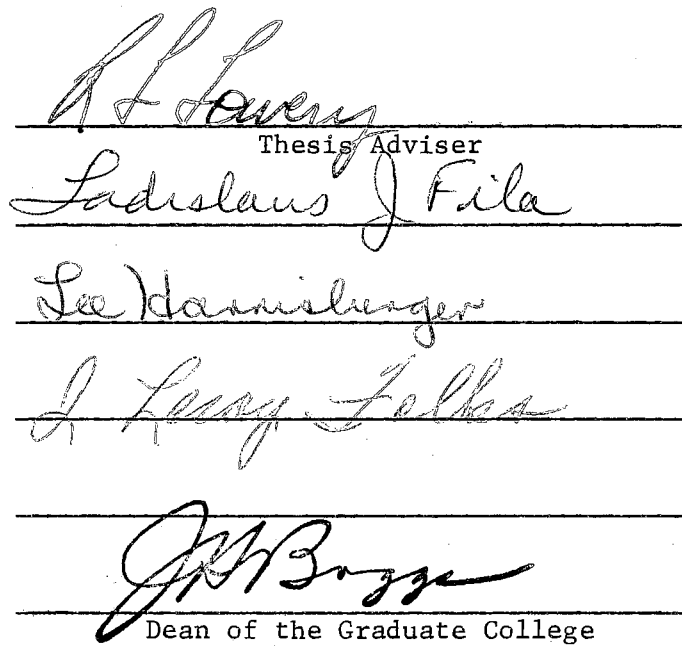 R L Lowery
Thesis Adviser
Ladislaus J Fila
Lee Harrisberger
J Leroy Folks
J H Boggs
Dean of the Graduate College